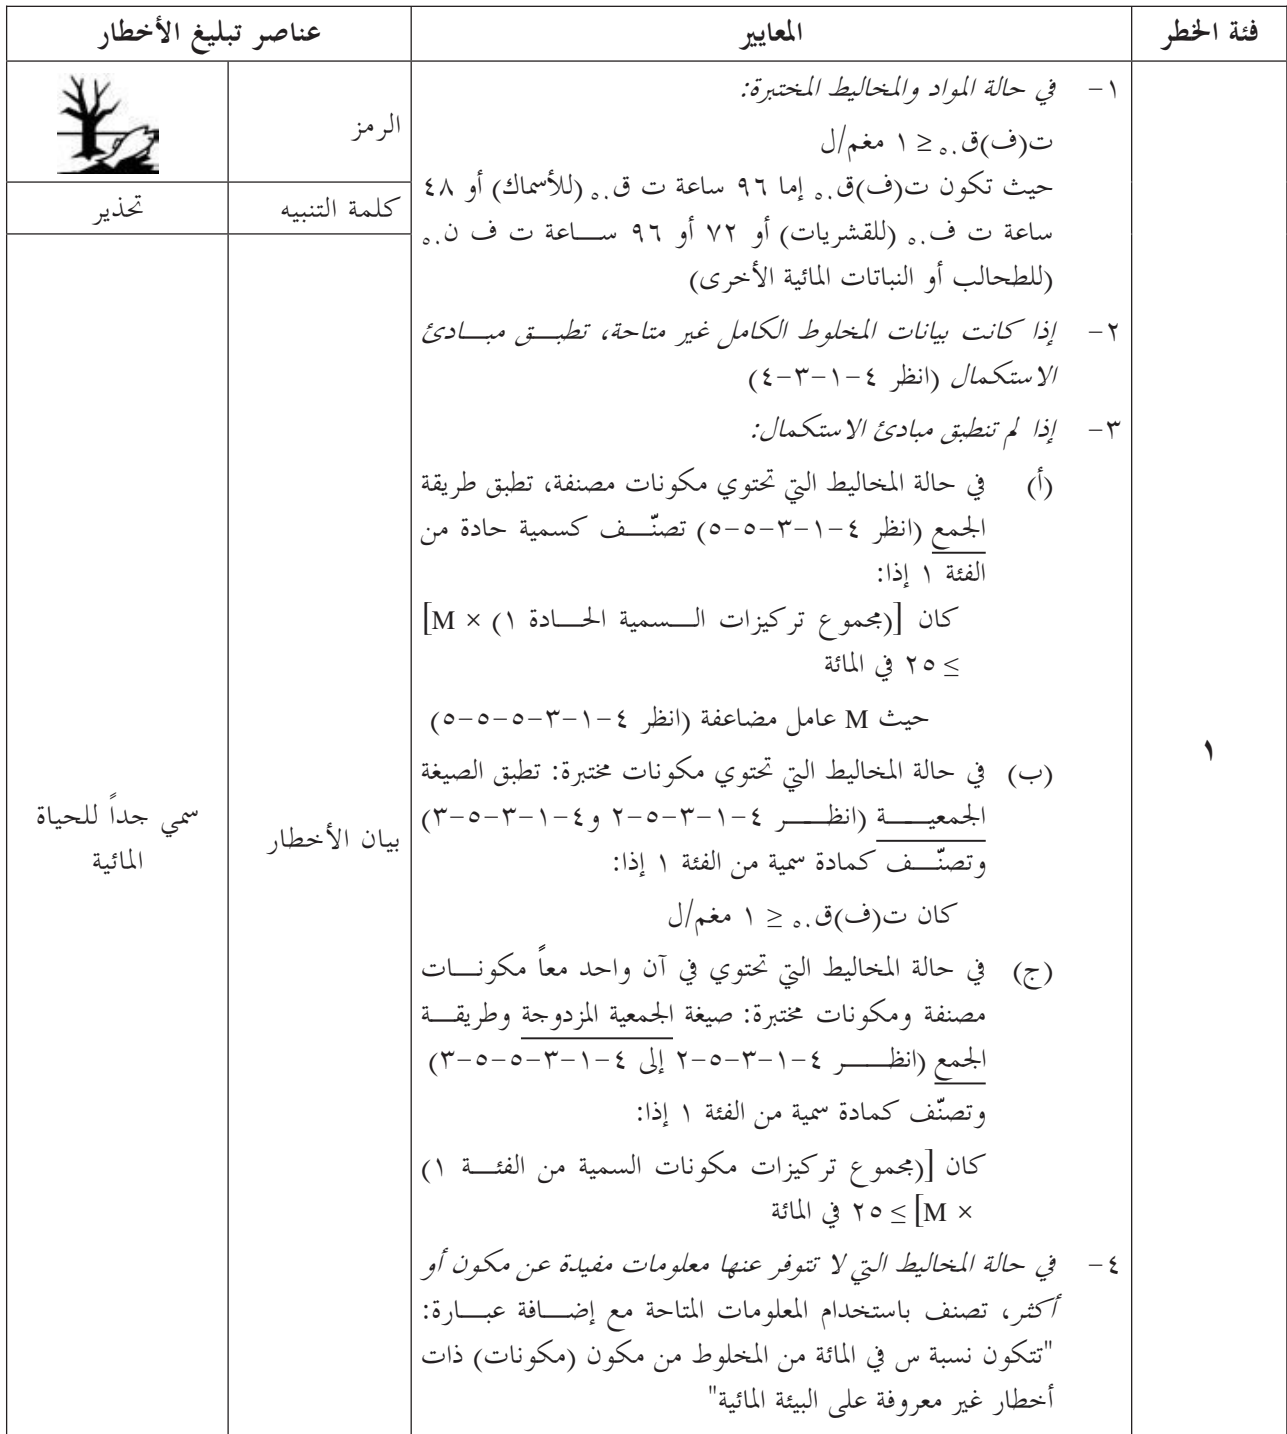 فئة الخطر
المعايير
عناصر تبليغ الأخطار
١
١- في حالة المواد والمخاليط المختبرة:
ت(ف)ق٥٠ ≤ ١ مغم/ل
حيث تكون ت(ف)ق٥٠ إما ٩٦ ساعة ت ق٥٠ (للأسماك) أو ٤٨
ساعة ت ف٥٠ (للقشريات) أو ٧٢ أو ٩٦ ساعة ت ف ن٥٠
(للطحالب أو النباتات المائية الأخرى)
٢- إذا كانت بيانات المخلوط الكامل غير متاحة، تطبق مبادئ
الاستكمال (انظر ٤-١-٣-٤)
٣- إذا لم تنطبق مبادئ الاستكمال:
(أ) في حالة المخاليط التي تحتوي مكونات مصنفة، تطبق طريقة
الجمع (انظر ٤-١-٣-٥-٥) تصنّف كسمية حادة من
الفئة ١ إذا:
كان [(مجموع تركيزات السمية الحادة ١) × M]
≥ ٢٥ في المائة
حيث M عامل مضاعفة (انظر ٤-١-٣-٥-٥-٥)
(ب) في حالة المخاليط التي تحتوي مكونات مختبرة: تطبق الصيغة
الجمعية (انظر ٤-١-٣-٥-٢ و٤-١-٣-٥-٣)
وتصنّف كمادة سمية من الفئة ١ إذا:
كان ت(ف)ق٥٠ ≤ ١ مغم/ل
(ج) في حالة المخاليط التي تحتوي في آن واحد معاً مكونات
مصنفة ومكونات مختبرة: صيغة الجمعية المزدوجة وطريقة
الجمع (انظر ٤-١-٣-٥-٢ إلى ٤-١-٣-٥-٥-٣)
وتصنّف كمادة سمية من الفئة ١ إذا:
كان [(مجموع تركيزات مكونات السمية من الفئة ١)
× M] ≥ ٢٥ في المائة
٤- في حالة المخاليط التي لا تتوفر عنها معلومات مفيدة عن مكون أو
أكثر، تصنف باستخدام المعلومات المتاحة مع إضافة عبارة:
"تتكون نسبة س في المائة من المخلوط من مكون (مكونات) ذات
أخطار غير معروفة على البيئة المائية"
الرمز
كلمة التنبيه
تحذير
بيان الأخطار
سمي جداً للحياة
المائية